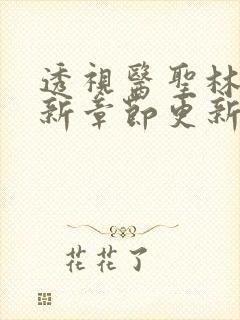 透視醫聖林
新章節更新
花花了